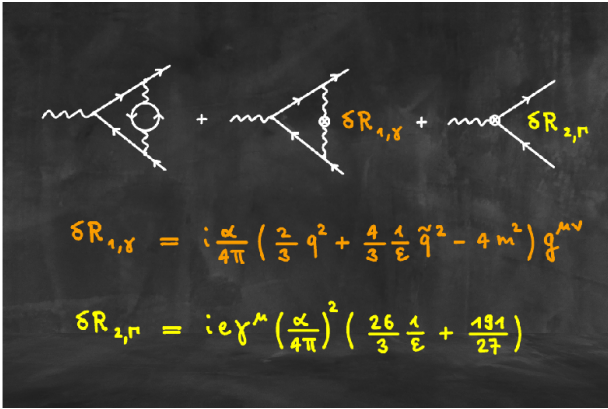 + δR₁,γ + δR₂,Γ
δR₁,γ = i α/4π ( 2/3 q² + 4/3 1/ε q̃² − 4m² ) g^μν
δR₂,Γ = ieγ^μ (α/4π)² ( 26/3 1/ε + 191/27 )